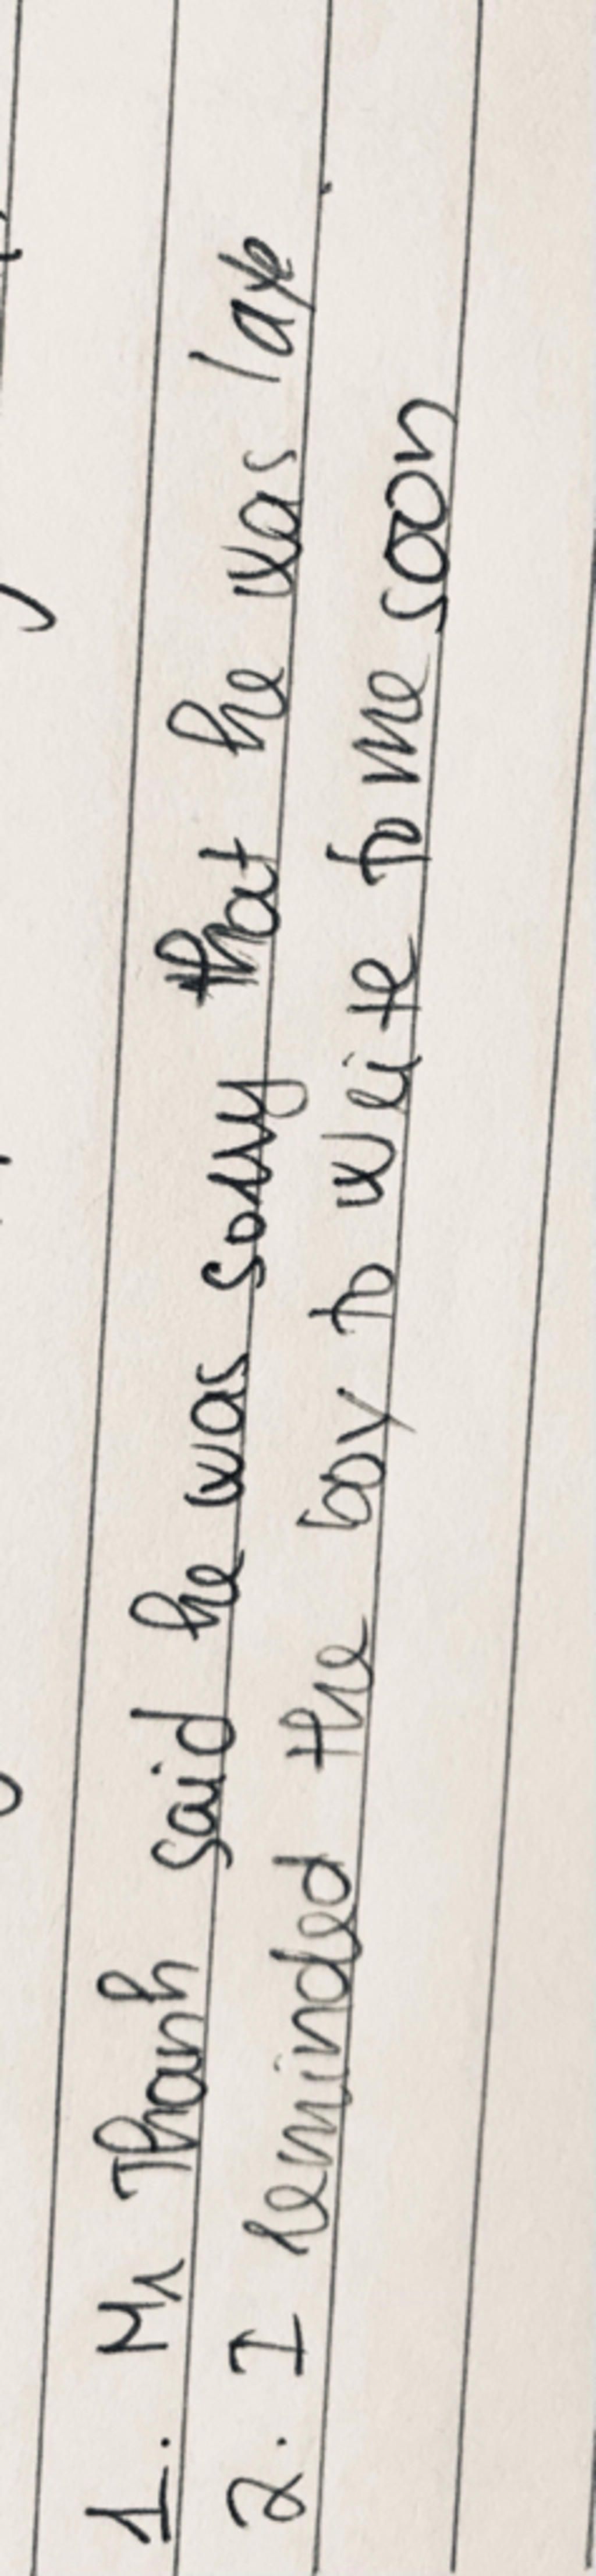 1. Mr Thanh said he was sorry that he was late
2. I reminded the boy to write to me soon